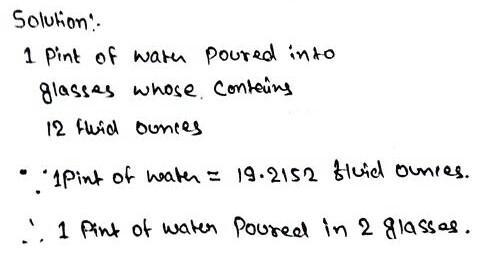 Solution:-
1 Pint of water Poured into
glasses whose. Conteins
12 fluid ounces
∵ 1Pint of water = 19.2152 fluid ounces.
∴ 1 Pint of water Poured in 2 glasses.